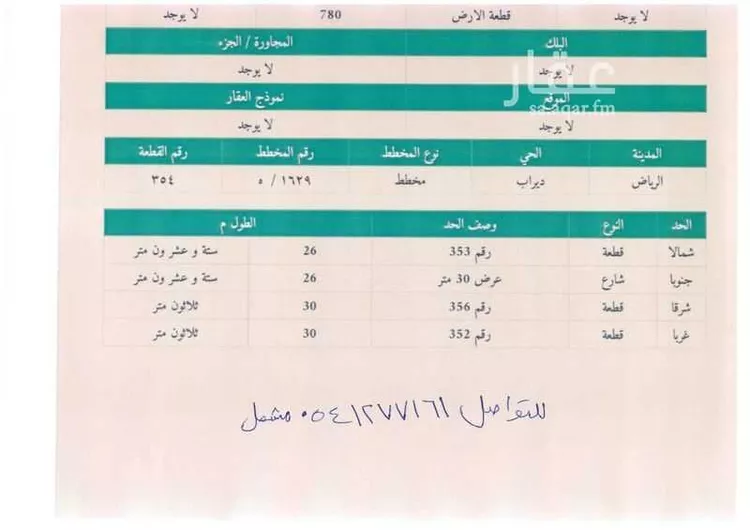 لا يوجد قطعة الارض 780 لا يوجد
البلك المجاورة / الجزء
لا يوجد لا يوجد
الموقع نموذج العقار
لا يوجد لا يوجد
عقار
sa.aqar.fm
المدينة الحي نوع المخطط رقم المخطط رقم القطعة
الرياض ديراب مخطط ١٦٢٩ / ٥ ٣٥٤
الحد النوع وصف الحد الطول م
شمالا قطعة رقم 353 26 ستة و عشرون متر
جنوبا شارع عرض 30 متر 26 ستة و عشرون متر
شرقا قطعة رقم 356 30 ثلاثون متر
غربا قطعة رقم 352 30 ثلاثون متر
للتواصل ٠٥٤١٢٧٧١٦١ مشعل